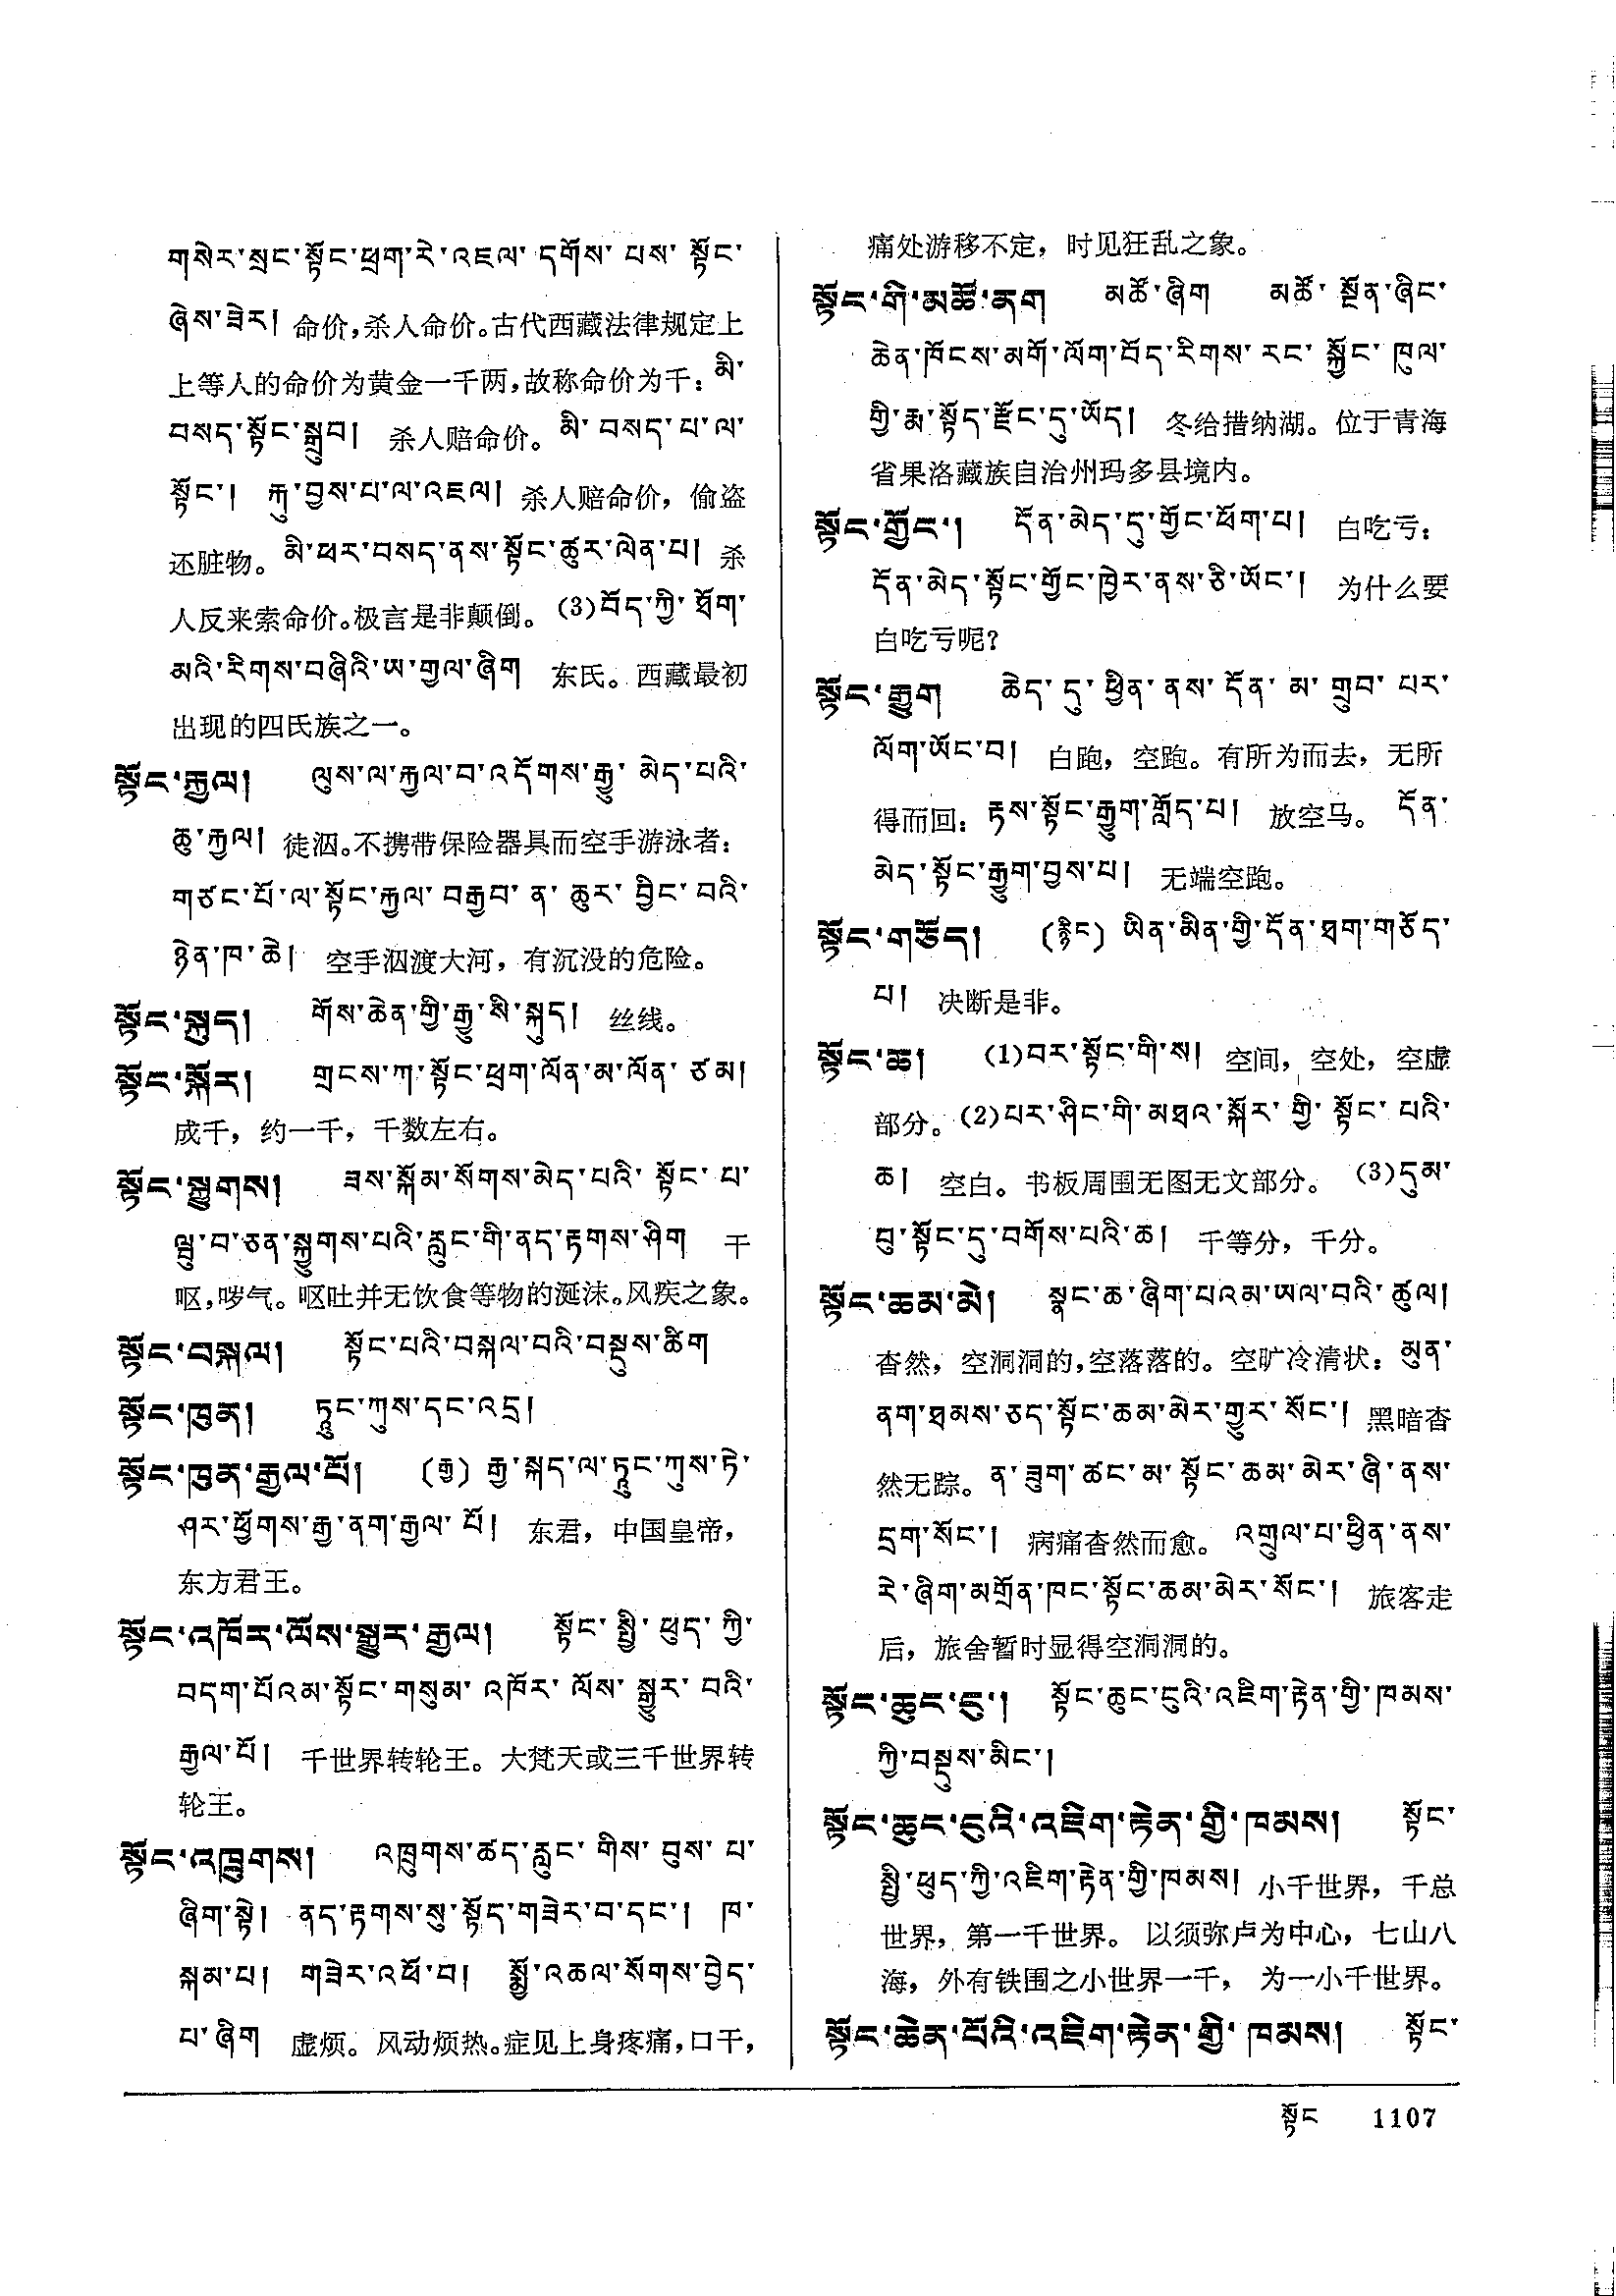 གསེར་སྲང་སྟོང་ཕྲག་རེ་འཇལ་དགོས་པས་སྟོང་
ཞེས་ཟེར། 命价,杀人命价。古代西藏法律规定上
上等人的命价为黄金一千两,故称命价为千: མི་
བསད་སྟོང་སྒྲུབ། 杀人赔命价。མི་བསད་པ་ལ་
སྟོང་། རྐུ་བྱས་པ་ལ་འཇལ། 杀人赔命价，偷盗
还脏物。མི་ཕར་བསད་ནས་སྟོང་ཚུར་ལེན་པ། 杀
人反来索命价。极言是非颠倒。(3)བོད་ཀྱི་ཐོག་
མའི་རིགས་བཞིའི་ཡ་གྱལ་ཞིག 东氏。西藏最初
出现的四氏族之一。
སྟོང་རྐྱལ། ལུས་ལ་རྐྱལ་བ་འདོགས་རྒྱུ་མེད་པའི་
ཆུ་རྐྱལ། 徒泅。不携带保险器具而空手游泳者:
གཙང་པོ་ལ་སྟོང་རྐྱལ་བརྒྱབ་ན་ཆུར་བྱིང་བའི་
ཉེན་ཁ་ཆེ། 空手泅渡大河，有沉没的危险。
སྟོང་སྐུད། གོས་ཆེན་གྱི་རྒྱུ་སི་སྐུད། 丝线。
སྟོང་སྐོར། གྲངས་ཀ་སྟོང་ཕྲག་ལོན་མ་ལོན་ཙམ།
成千，约一千，千数左右。
སྟོང་སྐྱུགས། ཟས་སྐོམ་སོགས་མེད་པའི་སྟོང་པ་
ལྦུ་བ་ཅན་སྐྱུགས་པའི་རླུང་གི་ནད་རྟགས་ཤིག 干
呕,哕气。呕吐并无饮食等物的涎沫。风疾之象。
སྟོང་བསྐལ། སྟོང་པའི་བསྐལ་བའི་བསྡུས་ཚིག
སྟོང་ཁུན། ཏུང་ཀུས་དང་འདྲ།
སྟོང་ཁུན་རྒྱལ་པོ། (རྒྱ) རྒྱ་སྐད་ལ་ཏུང་ཀུས་ཏེ་
ཤར་ཕྱོགས་རྒྱ་ནག་རྒྱལ་པོ། 东君，中国皇帝，
东方君王。
སྟོང་འཁོར་ལོས་སྒྱུར་རྒྱལ། སྟོང་སྤྱི་ཕུད་ཀྱི་
བདག་པོའམ་སྟོང་གསུམ་འཁོར་ལོས་སྒྱུར་བའི་
རྒྱལ་པོ། 千世界转轮王。大梵天或三千世界转
轮王。
སྟོང་འཁྲུགས། འཁྲུགས་ཚད་རླུང་གིས་བུས་པ་
ཞིག་སྟེ། ནད་རྟགས་སུ་སྟོད་གཟེར་བ་དང་། ཁ་
སྐམ་པ། གཟེར་འཕོ་བ། སྨྱོ་འཆལ་སོགས་བྱེད་
པ་ཞིག 虚烦。风动烦热。症见上身疼痛,口干,
痛处游移不定，时见狂乱之象。
སྟོང་གི་མཚོ་ནག མཚོ་ཞིག མཚོ་སྔོན་ཞིང་
ཆེན་ཁོངས་མགོ་ལོག་བོད་རིགས་རང་སྐྱོང་ཁུལ་
གྱི་རྨ་སྟོད་རྫོང་དུ་ཡོད། 冬给措纳湖。位于青海
省果洛藏族自治州玛多县境内。
སྟོང་གྱོང་། དོན་མེད་དུ་གྱོང་ཕོག་པ། 白吃亏:
དོན་མེད་སྟོང་གྱོང་ཁྱེར་ནས་ཅི་ཡོང་། 为什么要
白吃亏呢?
སྟོང་རྒྱུག ཆེད་དུ་ཕྱིན་ནས་དོན་མ་གྲུབ་པར་
ལོག་ཡོང་བ། 白跑，空跑。有所为而去，无所
得而回: རྟས་སྟོང་རྒྱུག་གློད་པ། 放空马。དོན་
མེད་སྟོང་རྒྱུག་བྱས་པ། 无端空跑。
སྟོང་གཅོད། (རྙིང) ཡིན་མིན་གྱི་དོན་ཐག་གཅོད་
པ། 决断是非。
སྟོང་ཆ། (1)བར་སྟོང་གི་ས། 空间，空处，空虚
部分。(2)པར་ཤིང་གི་མཐའ་སྐོར་གྱི་སྟོང་པའི་
ཆ། 空白。书板周围无图无文部分。(3)དུམ་
བུ་སྟོང་དུ་བགོས་པའི་ཆ། 千等分，千分。
སྟོང་ཆམ་མེ། སྣང་ཆ་ཞིག་པའམ་ཡལ་བའི་ཚུལ།
杳然，空洞洞的,空落落的。空旷冷清状: མུན་
ནག་ཐམས་ཅད་སྟོང་ཆམ་མེར་གྱུར་སོང་། 黑暗杳
然无踪。ན་ཟུག་ཚང་མ་སྟོང་ཆམ་མེར་ཞི་ནས་
དྲག་སོང་། 病痛杳然而愈。འགྲུལ་པ་ཕྱིན་ནས་
རེ་ཞིག་མགྲོན་ཁང་སྟོང་ཆམ་མེར་སོང་། 旅客走
后，旅舍暂时显得空洞洞的。
སྟོང་ཆུང་ངུ་། སྟོང་ཆུང་ངུའི་འཇིག་རྟེན་གྱི་ཁམས་
ཀྱི་བསྡུས་མིང་།
སྟོང་ཆུང་ངུའི་འཇིག་རྟེན་གྱི་ཁམས། སྟོང་
སྤྱི་ཕུད་ཀྱི་འཇིག་རྟེན་གྱི་ཁམས། 小千世界，千总
世界，第一千世界。以须弥卢为中心，七山八
海，外有铁围之小世界一千，为一小千世界。
སྟོང་ཆེན་པོའི་འཇིག་རྟེན་གྱི་ཁམས། སྟོང་
སྟོང 1107